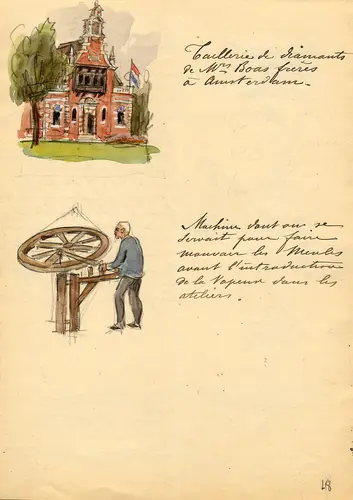 Taillerie de diamants
de Mrs Boas frères
à Amsterdam.
Machine dont on se
servait pour faire
mouvoir les Meules
avant l'introduction
de la Vapeur dans les
ateliers.
18